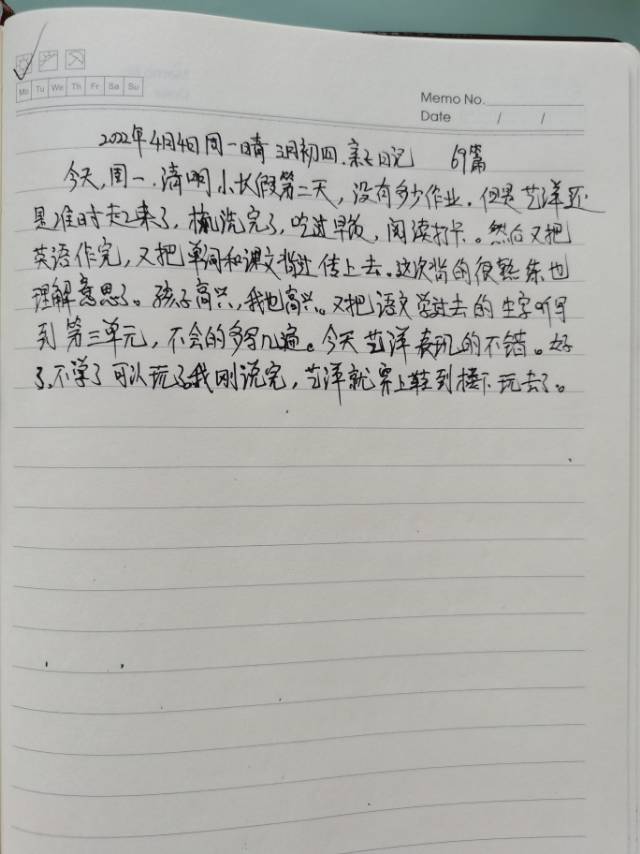 Mo Tu We Th Fr Sa Su
Memo No.
Date / /
2022年4月4日周一晴 三月初四.亲子日记 69篇
今天,周一.清明小长假第二天,没有多少作业.但是艺洋还
是准时起来了,梳洗完了,吃过早饭,阅读打卡。然后又把
英语作完,又把单词和课文背过传上去.这次背的很熟练也
理解意思了。孩子高兴,我也高兴。又把语文学过去的生字听写
到第三单元,不会的多写几遍。今天艺洋表现的不错。好
了.不学了可以玩了.我刚说完,艺洋就穿上鞋到楼下玩去了。